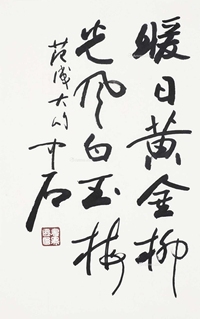 暖日黄金柳
光风白玉梅
范成大句 中石